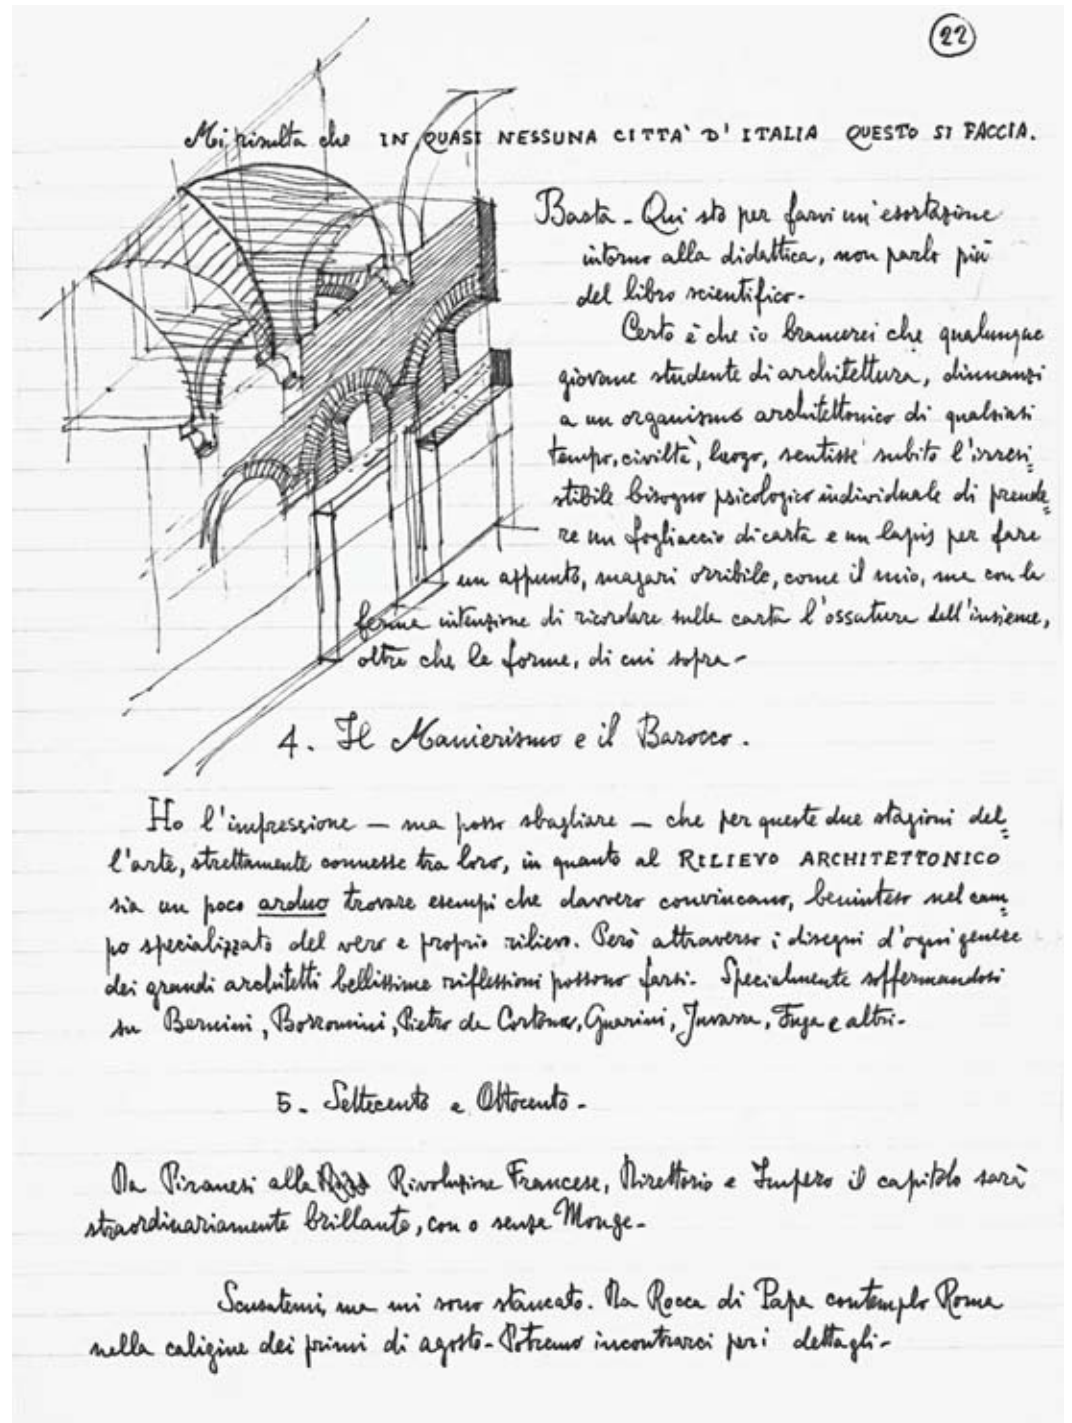 22
Mi risulta che IN QUASI NESSUNA CITTA' D'ITALIA QUESTO SI FACCIA.
Basta - Qui sto per farvi un'esortazione
intorno alla didattica, non parlo più
del libro scientifico -
Certo è che io bramerei che qualunque
giovane studente di architettura, dinnanzi
a un organismo architettonico di qualsiasi
tempo, civiltà, luogo, sentisse subito l'irresi=
stibile bisogno psicologico individuale di prende=
re un fogliaccio di carta e un lapis per fare
un appunto, magari orribile, come il mio, ma con la
ferma intenzione di ricordare sulla carta l'ossatura dell'insieme,
oltre che le forme, di cui sopra -
4. Il Manierismo e il Barocco.
Ho l'impressione - ma posso sbagliare - che per queste due stagioni del=
l'arte, strettamente connesse tra loro, in quanto al RILIEVO ARCHITETTONICO
sia un poco arduo trovare esempi che davvero convincano, beninteso nel cam=
po specializzato del vero e proprio rilievo. Però attraverso i disegni d'ogni genere
dei grandi architetti bellissime riflessioni possono farsi. Specialmente soffermandosi
su Bernini, Borromini, Pietro da Cortona, Guarini, Juvarra, Fuga e altri -
5. Settecento e Ottocento -
Da Piranesi alla Rivoluzione Francese, Direttorio e Impero il capitolo sarà
straordinariamente brillante, con o senza Monge -
Scusatemi, ma mi sono stancato. Da Rocca di Papa contemplo Roma
nella caligine dei primi di agosto - Potremo incontrarci per i dettagli -